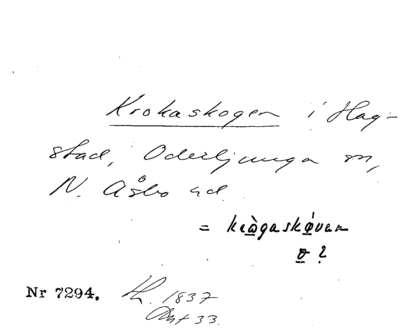 Krokaskogen i Hag-
stad, Oderljunga sn,
N. Åsbo hd.
= krògaskǫ́ven
ꝋ ?
Nr 7294. Th. 1837
Akt 33.